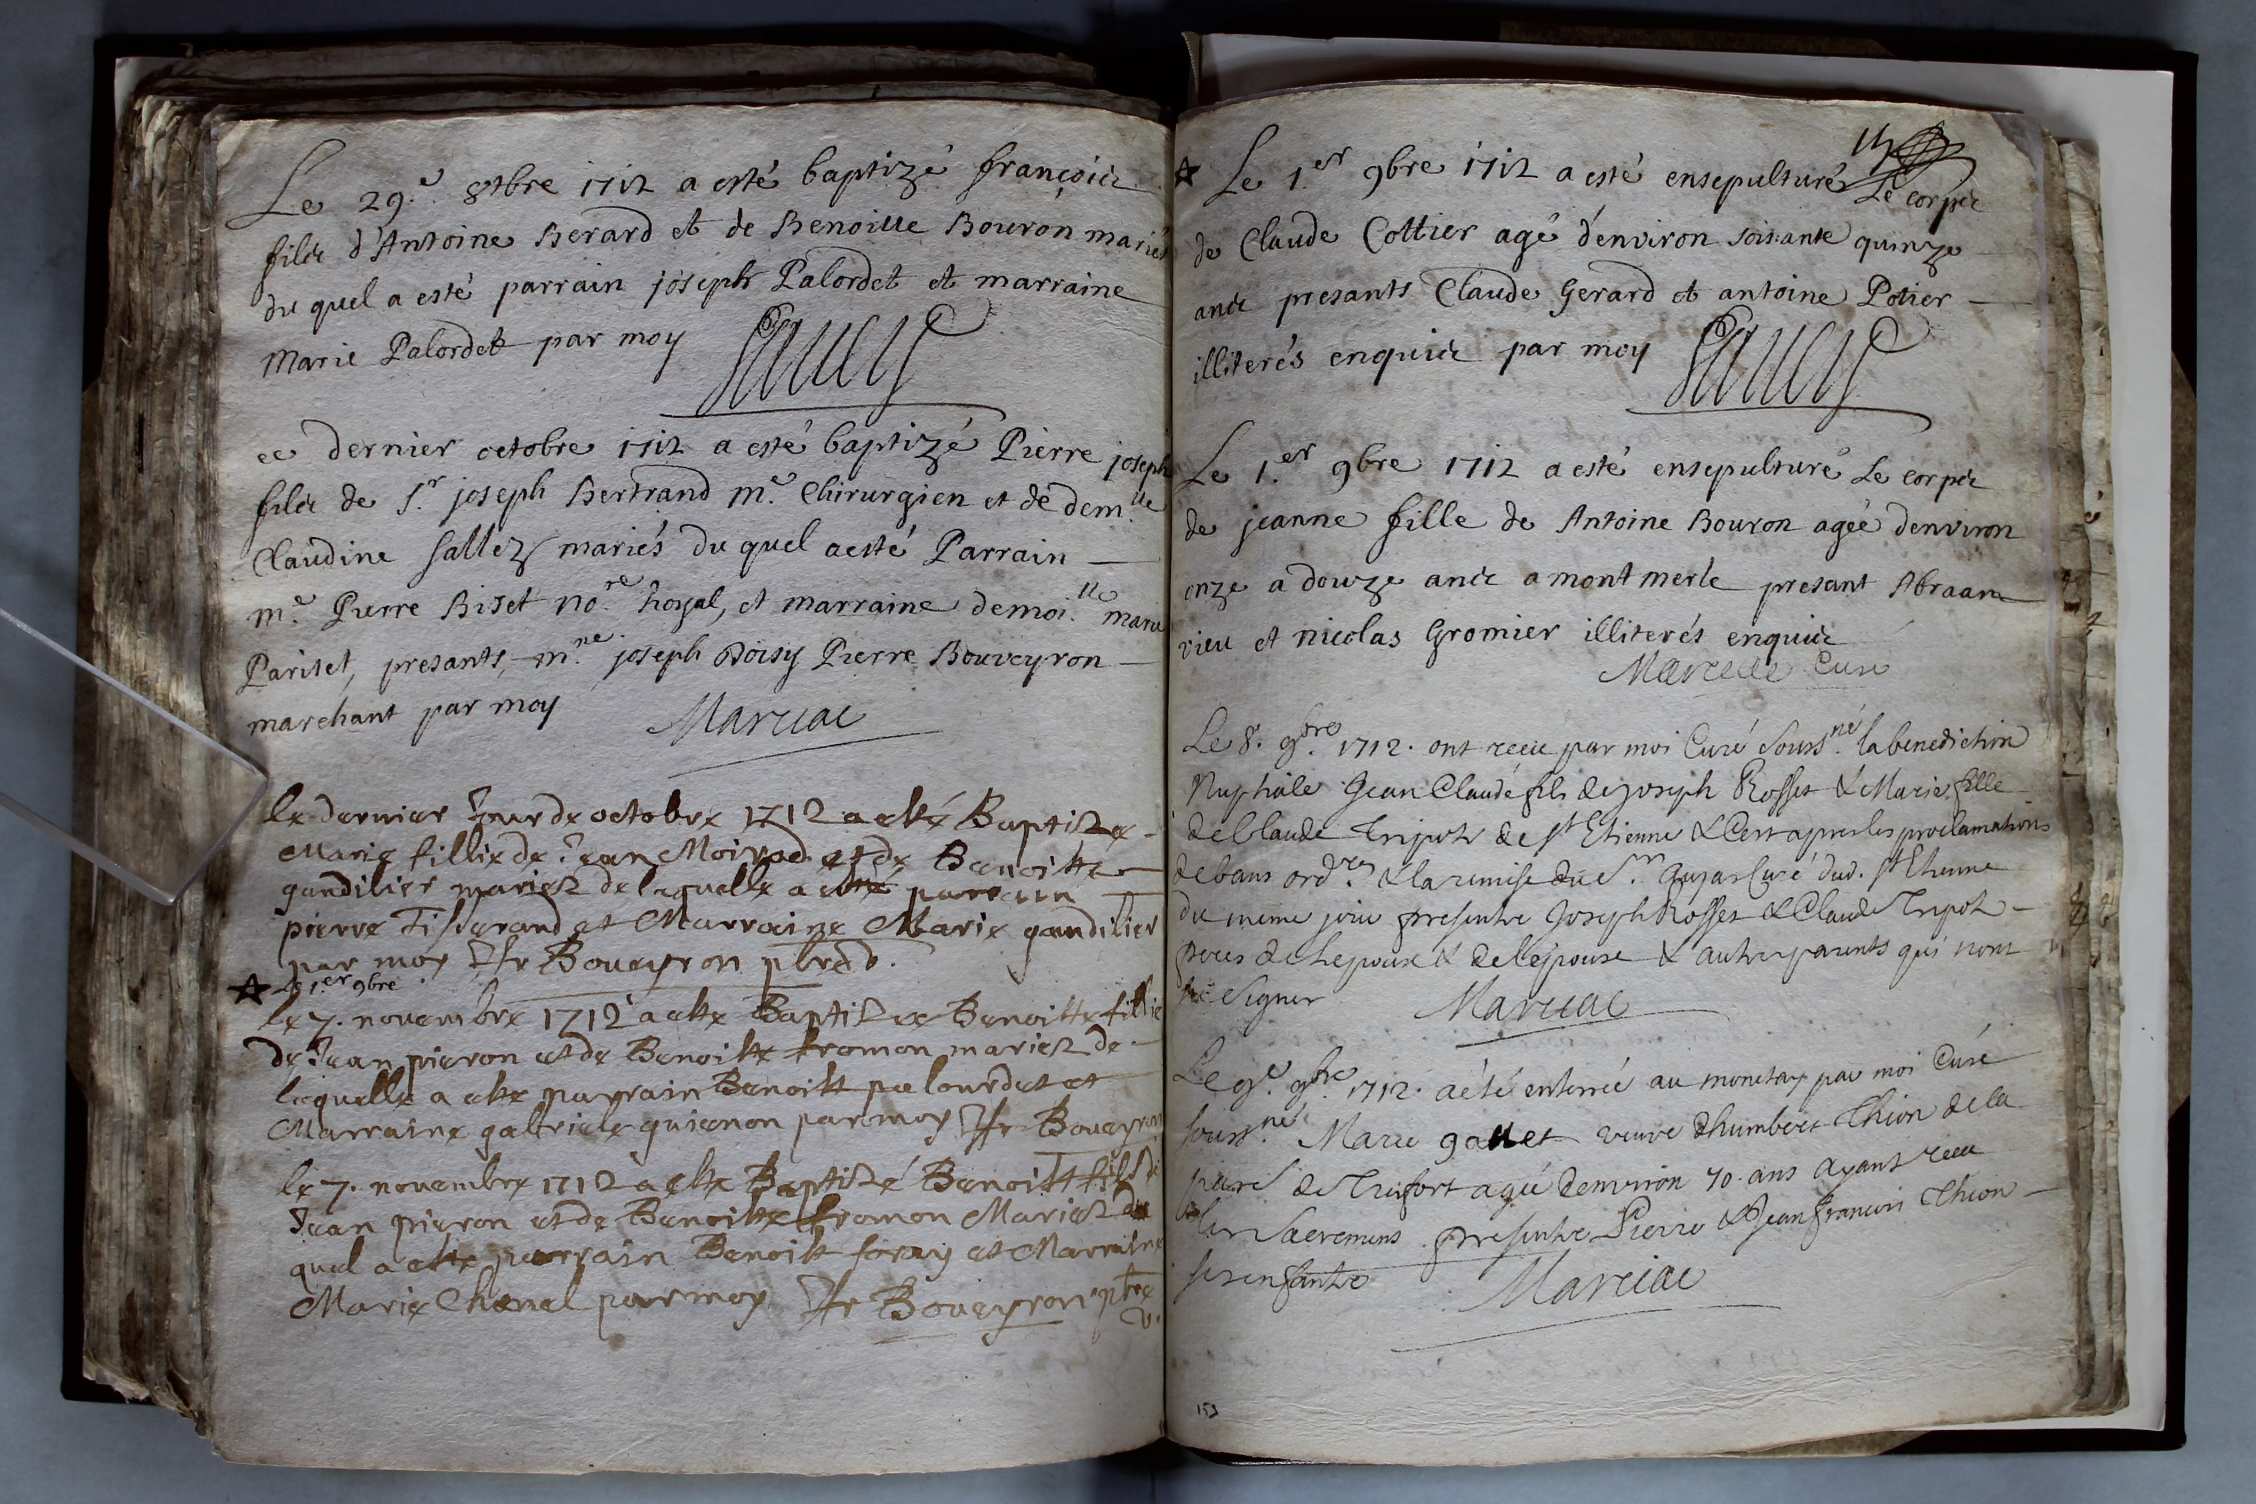 Le 29.e 8tbre 1712 a esté baptizé françois
fils d'Antoine Berard et de Benoitte Bouron mariés
du quel a esté parrain joseph Palordet et marraine
Marie Palordet par moy
ce dernier octobre 1712 a esté baptizé Pierre joseph
fils de S.r joseph Bertrand m.e Chirurgien et de dem.lle
Claudine Sallez mariés du quel a esté Parrain
m.e Pierre Biset no.re Royal, et marraine demoi.lle marie
Pariset, presants, m.re joseph Doisy Pierre Bouveyron
marchant par moy Marciac
le dernier Jour de octobre 1712 a esté Baptizee
Marie fillie de Jean Moirod et de Benoitte
gandilier mariez de laquelle a esté parrain
pierre Tisserand et Marraine Marie gandilier
par moy Boueyron
Le 1.er 9bre
le 7. novembre 1712 a este Baptizee Benoitte fillie
de Jean pieron et de Benoitte fromon mariez de
laquelle a este parrain Benoitt palourdet et
Marraine gabriele guienon par moy Boueyron
le 7. novembre 1712 a este Baptizé Benoitt fils de
Jean pieron et de Benoitte fromon Mariez du
quel a este parrain Benoitt foray et Marraine
Marie Chanel par moy Boueyron ptre
v.
Le 1.er 9bre 1712 a esté ensepulturé Le corps
de Claude Cottier agé d'environ soisante quinze
ans presants Claude Gerard et antoine Potier
illiterés enquis par moy
Le 1.er 9bre 1712 a esté ensepulturé Le corps
de jeanne fille de Antoine Bouron agée d'environ
onze a douze ans a mont merle presant Abraam
vieu et nicolas Gromier illiterés enquis
Marciac Curé
Le 8. 9.bre 1712. ont receu par moi Curé Souss.né la benediction
Nuptiale Jean Claude fils de joseph Rosset & Marie fille
de Claude Tripoz de St Etienne & C'est apres les proclamations
de bans ord.res & la remise du S.r Curé dud. St Etienne
du meme jour presents Joseph Rosset & Claude Tripoz
peres de Lepoux & de Lepouse & autres parents qui n'ont
sçu Signer Marciac
Le 9.e 9.bre 1712. a été enterrée au monetay par moi Curé
souss.né Marie gallet veuve d'humbert Thion de la
paroisse de Treffort agée denviron 70. ans ayant receu
les Sacremens presents Pierre & Jean francois Thion
ses enfants Marciac
153